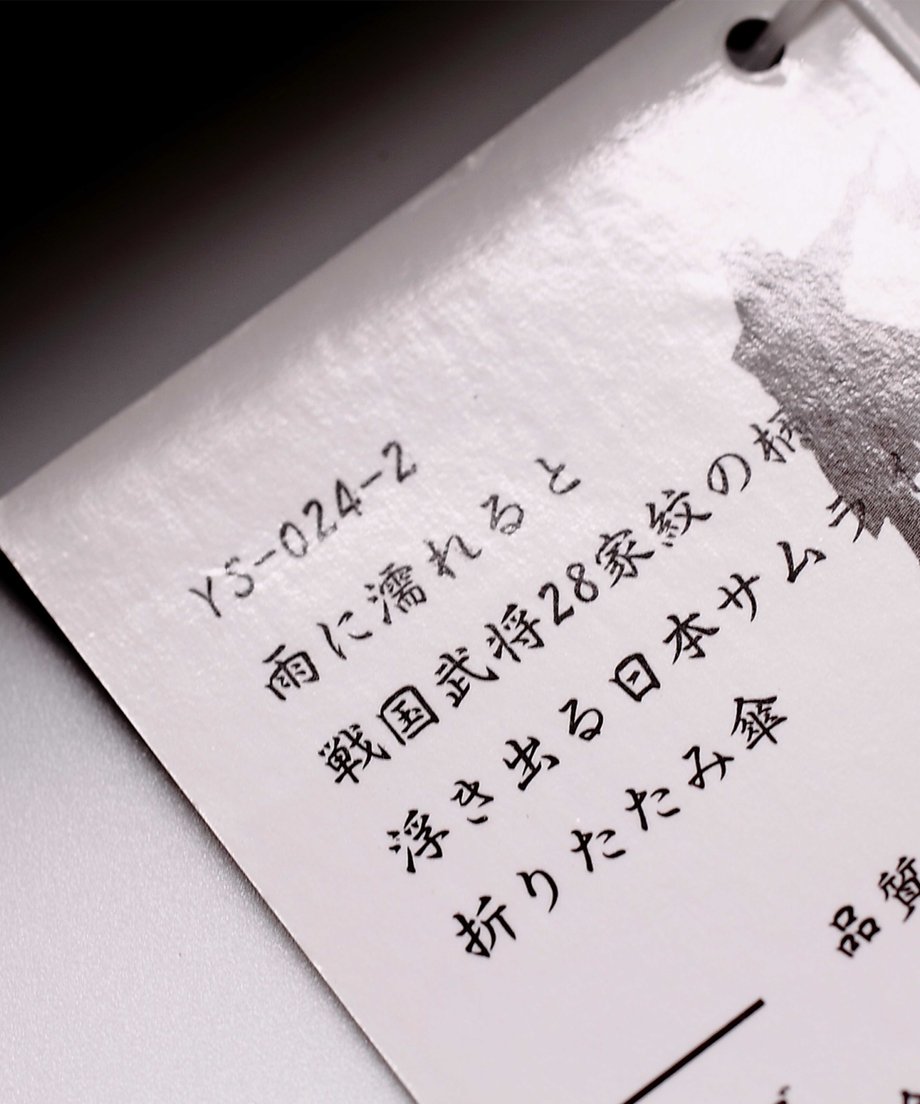 YS-024-2
雨に濡れると
戦国武将28家紋の柄
浮き出る日本サムライ
折りたたみ傘
品質